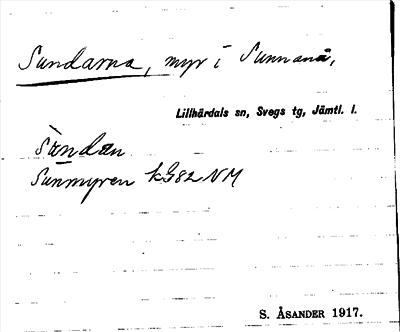 Sundarna, myr i Sunnanå,
Lillhärdals sn, Svegs tg, Jämtl. l.
sundan
Sunmyren kG82NM
S. ÅSANDER 1917.